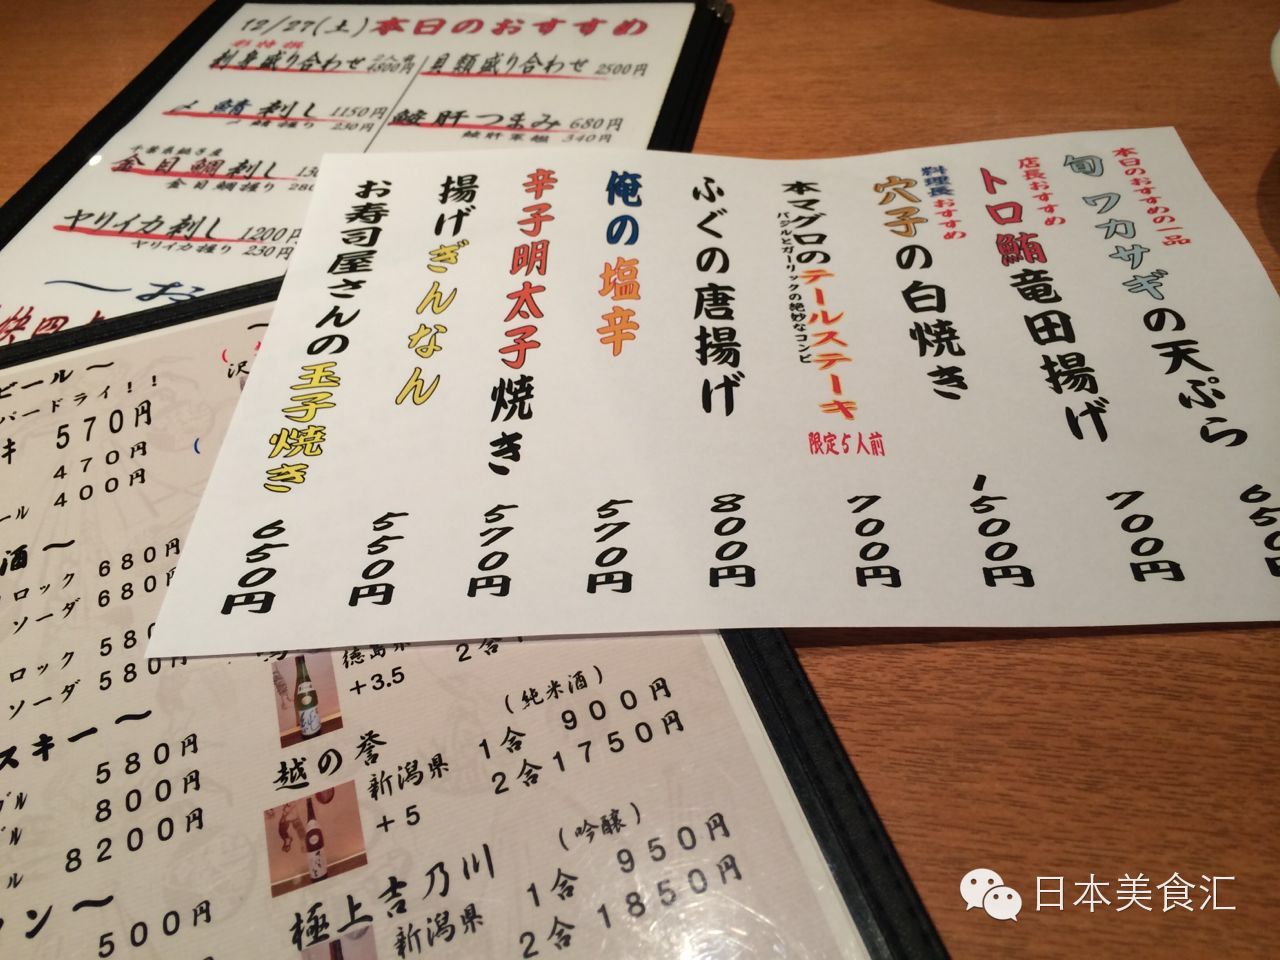 12/27(土)本日のおすすめ
刺身盛り合わせ
4800円
貝類盛り合わせ 2500円
〆鯖刺し 1150円
〆鯖握り 230円
鮟肝つまみ 680円
鮟肝軍艦 340円
千葉県銚子産
金目鯛刺し
金目鯛握り 280
ヤリイカ刺し 1200円
ヤリイカ握り 230円
～お
本日のおすすめの一品
旬ワカサギの天ぷら
650
店長おすすめ
トロ鮪竜田揚げ
700円
料理長おすすめ
穴子の白焼き
1500円
本マグロのテールステーキ
バジルとガーリックの絶妙なコンビ
限定5人前
700円
ふぐの唐揚げ
800円
俺の塩辛
570円
辛子明太子焼き
570円
揚げぎんなん
550円
お寿司屋さんの玉子焼き
650円
ビール～
パードライ！！
キ 570円
470円
ール 400円
酒～
ロック 680円
ソーダ 680円
ロック 580
ソーダ 580円
スキー～
グル 580円
ブル 800円
ル 8200円
ン～
500円
徳島県
+3.5
2合
越の誉
新潟県
+5
(純米酒)
1合 900円
2合 1750円
極上吉乃川
新潟県
(吟醸)
1合 950円
2合 1850円
日本美食汇